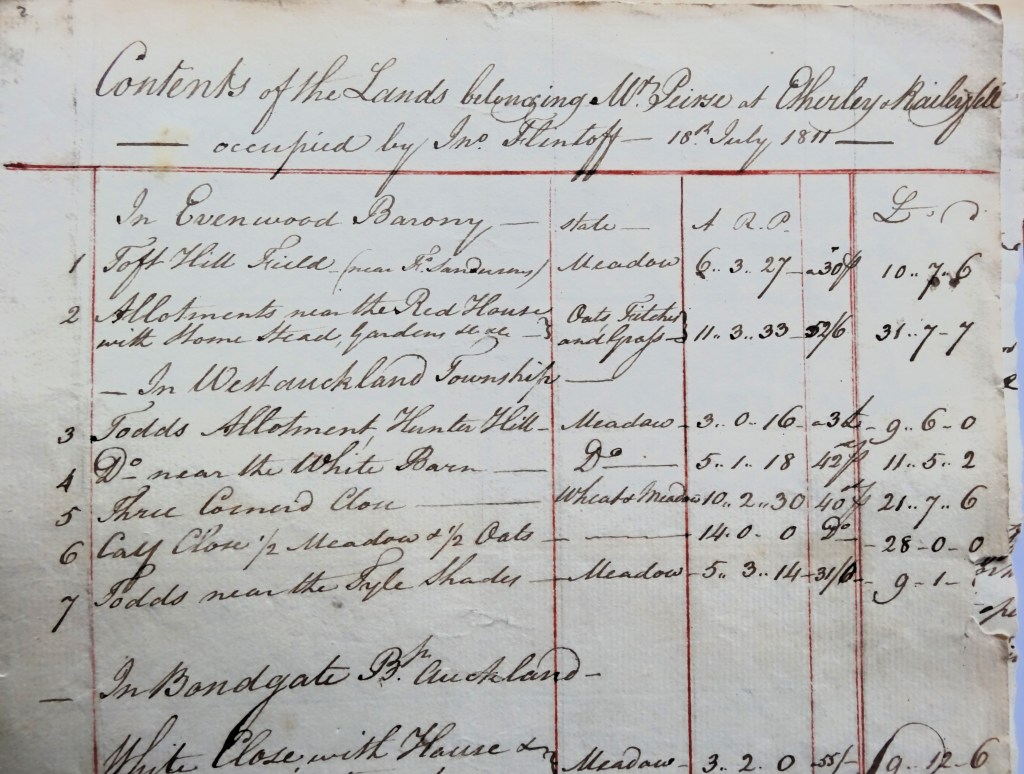 2
Contents of the Lands belonging Mrs. Peirse at Etherley & Raileyfell
— occupied by Jno. Flintoff — 18th July 1811 —
In Evenwood Barony — state — A R.. P. £.. d.
1 Toft Hill Field (near Fs. Sandersons) Meadow 6.. 3.. 27 — a 30/ 10.. 7.. 6
2 Allotments near the Red House Oats Fitches
with Home Stead, Gardens &c &c —} and Grass —} 11.. 3.. 33 52/6 31.. 7 - 7
— In West auckland Township —
3 Todds Allotment, Hunter Hill — Meadow — 3.. 0.. 16 - 9.. 6 - 0
4 Do near the White Barn — Do — 5.. 1.. 18 42/ 11.. 5.. 2
5 Three Cornerd Close — Wheat & Meadow 10.. 2.. 30 40/ 21.. 7.. 6
6 Calf Close 1/2 Meadow & 1/2 Oats — — 14. 0 - 0 Do - 28 - 0 - 0
7 Todds near the Tyle Shades — Meadow - 5.. 3.. 14 - 31/6 - 9 - 1 -
— In Bondgate Bp. Auckland —
White Close with House & Meadow — 3.. 2.. 0 - 55/- 9.. 12.. 6